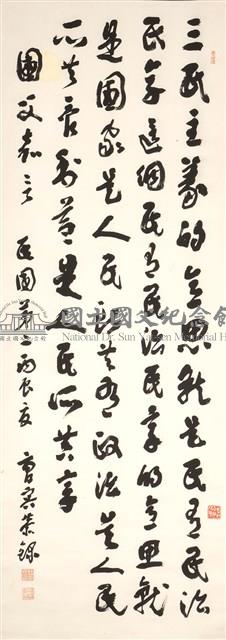 三民主義的意思就是民有民治
民享這個民有民治民享的意思就
是國家是人民所共有政治是人民
所共管利益是人民所共享
國父嘉言 民國第一丙辰夏
國立國父紀念館
National Dr. Sun Yat-sen Memorial Hall